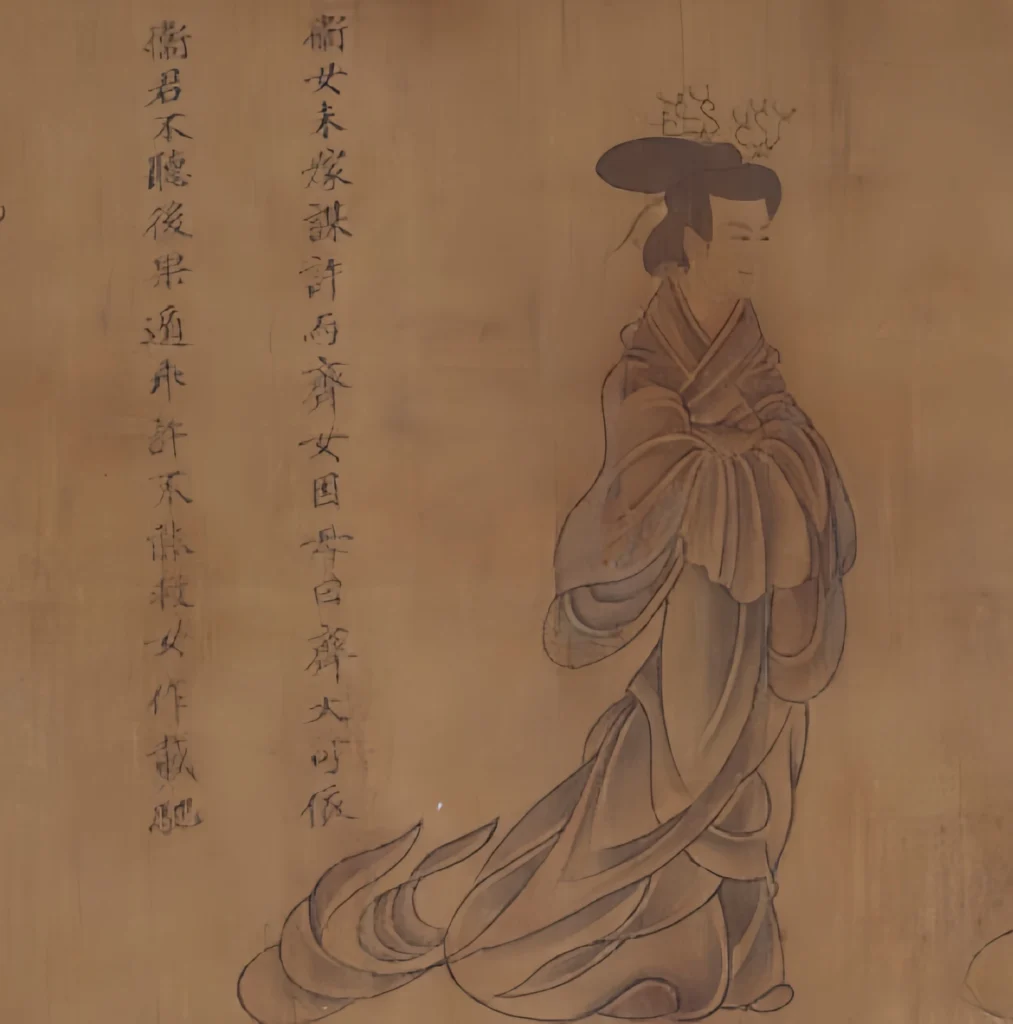 衛女未嫁謀許而齊女因母曰齊大可依
衛君不聽後果遁許不能救女作載馳